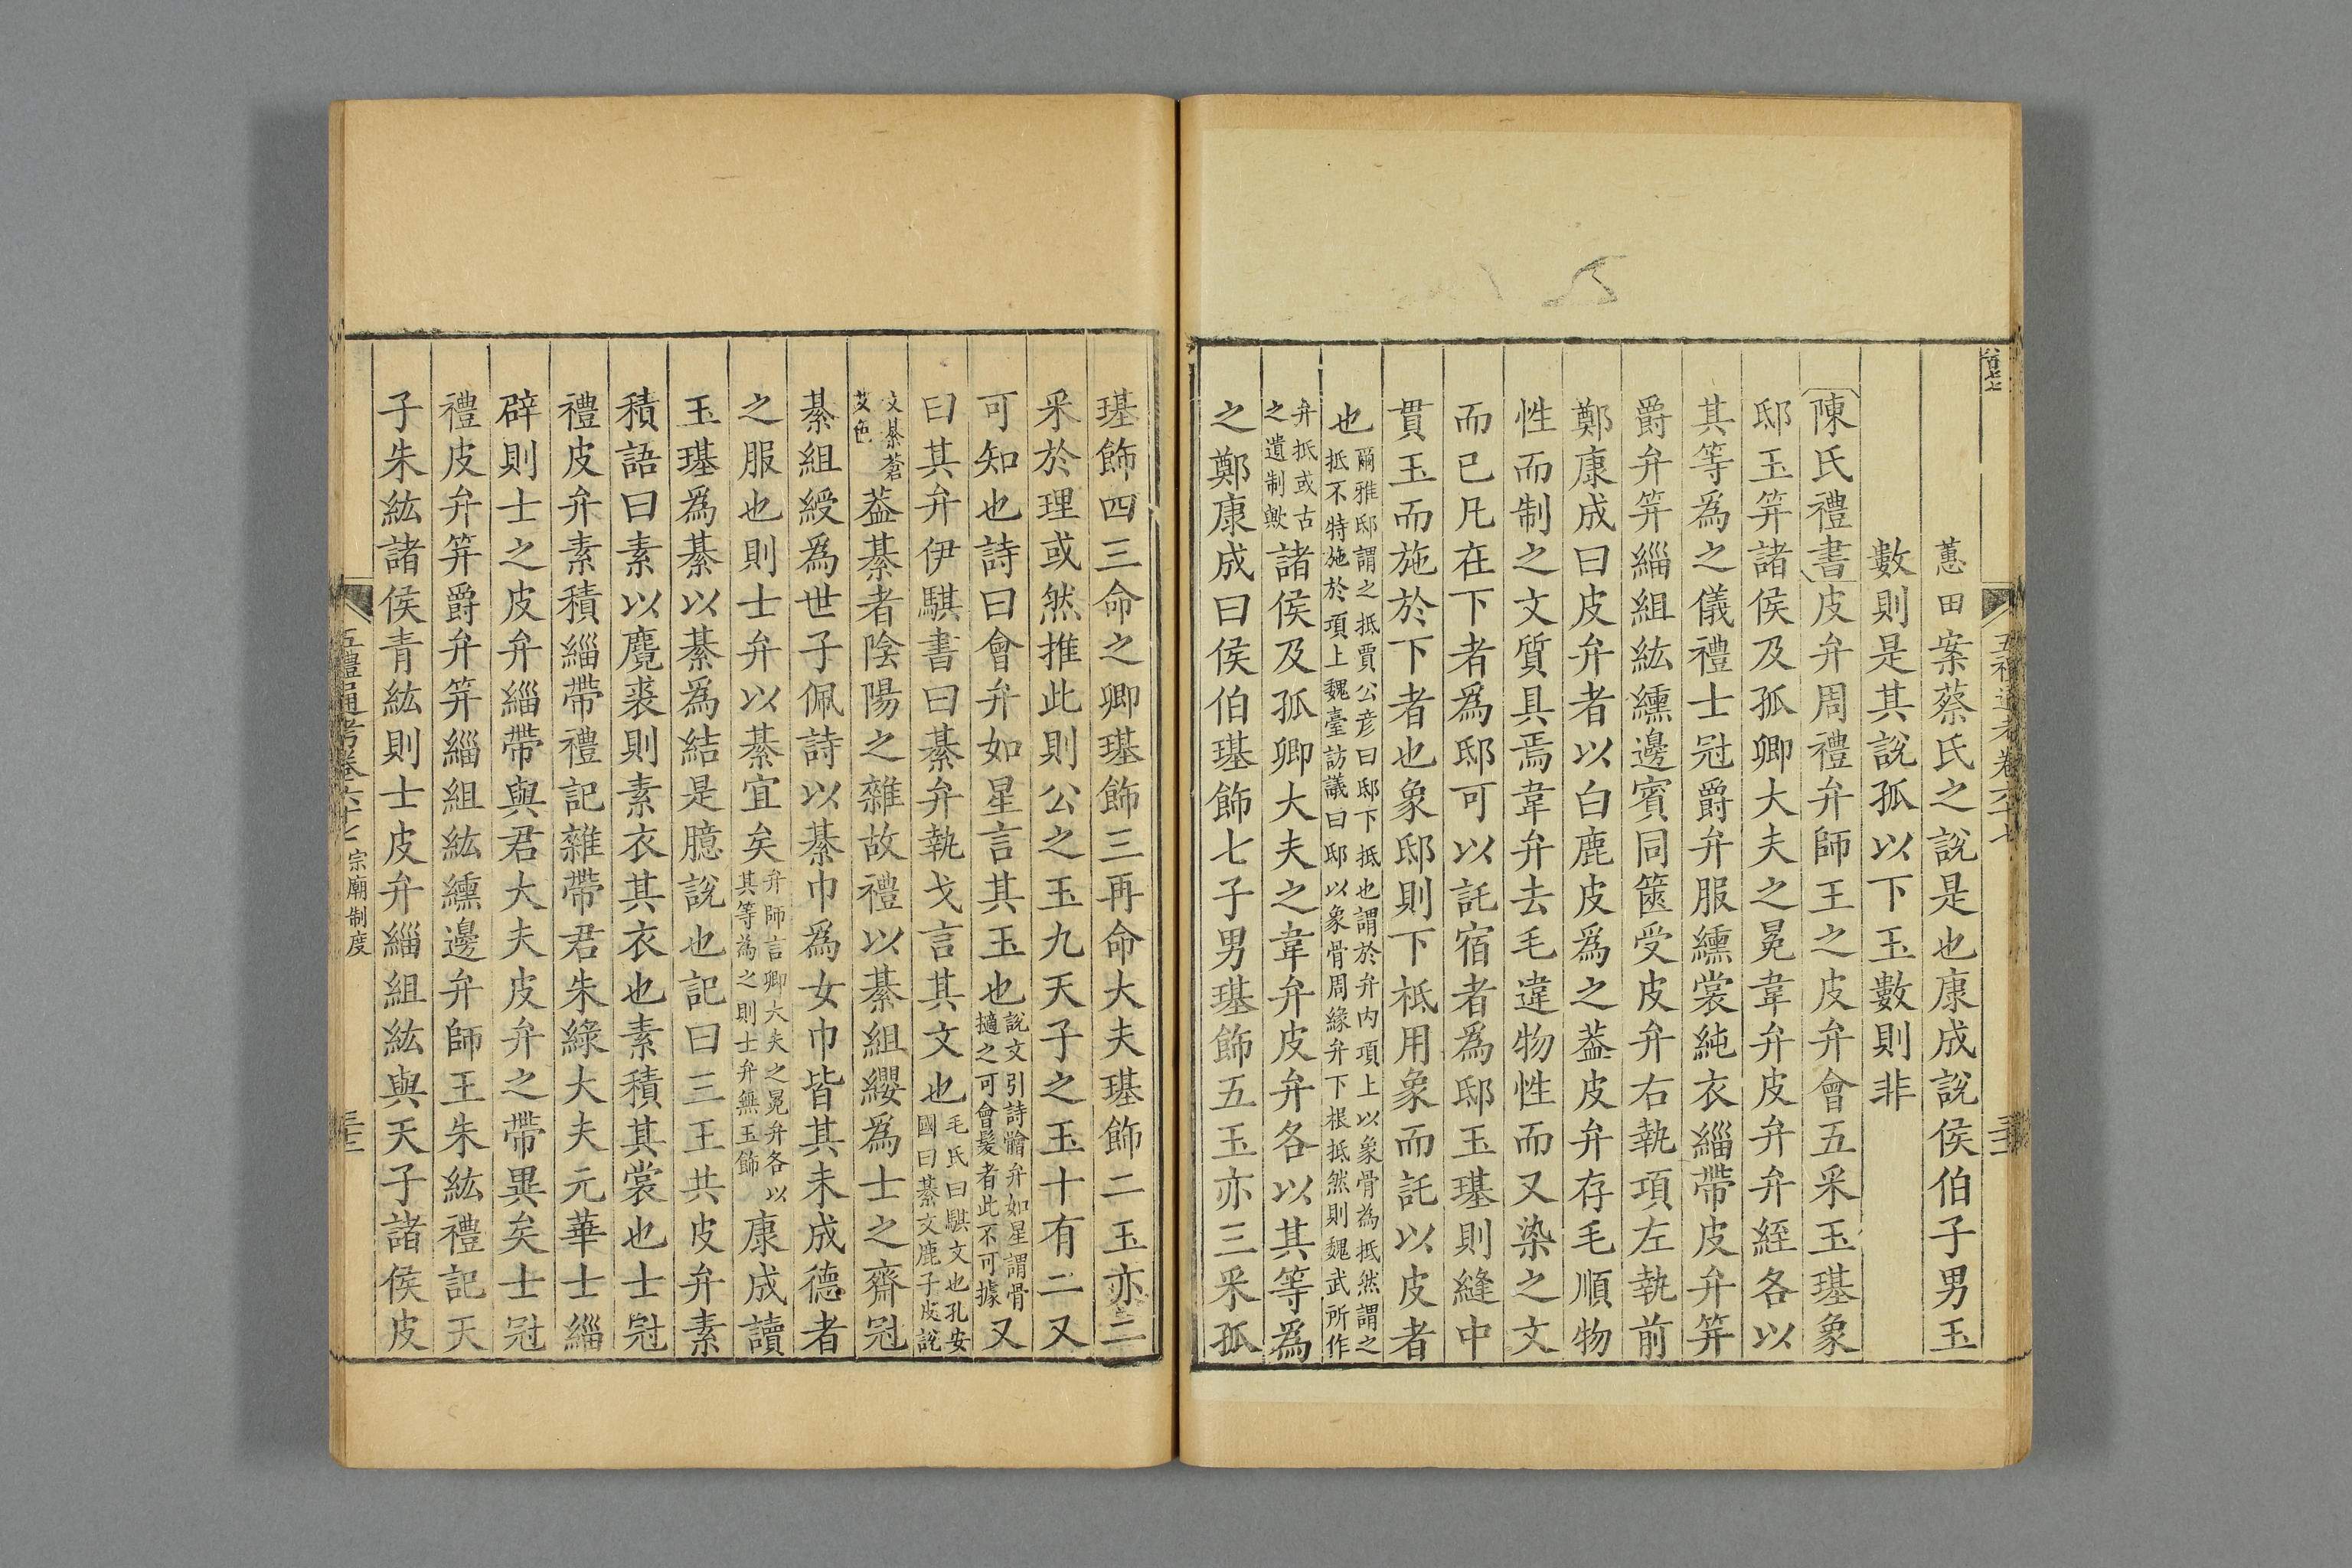 蕙田案蔡氏之說是也康成說侯伯子男玉
數則是其說孤以下玉數則非
陳氏禮書皮弁周禮弁師王之皮弁會五采玉璂象
邸玉笄諸侯及孤卿大夫之冕韋弁皮弁弁絰各以
其等為之儀禮士冠爵弁服纁裳純衣緇帶皮弁笄
爵弁笄緇組紘纁邊賓同篋受皮弁右執項左執前
鄭康成曰皮弁者以白鹿皮爲之蓋皮弁存毛順物
性而制之文質具焉韋弁去毛違物性而又染之文
而已凡在下者爲邸可以託宿者爲邸玉璂則縫中
貫玉而施於下者也象邸則下柢用象而託以皮者
也爾雅邸謂之抵賈公彦曰邸下抵也謂於弁内項上以象骨為抵然謂之
抵不特施於項上魏臺訪議曰邸以象骨周緣弁下根抵然則魏武所作
弁抵或古
之遺制歟諸侯及孤卿大夫之韋弁皮弁各以其等爲
之鄭康成曰侯伯璂飾七子男璂飾五玉亦三采孤
璂飾四三命之卿璂飾三再命大夫璂飾二玉亦二
采於理或然推此則公之玉九天子之玉十有二又
可知也詩曰會弁如星言其玉也說文引詩䯤弁如星謂骨
擿之可會髮者此不可據又
曰其弁伊騏書曰綦弁執戈言其文也毛氏曰騏文也孔安
國曰綦文鹿子皮說
文綦蒼
艾色蓋綦者陰陽之雜故禮以綦組纓爲士之齋冠
綦組綬爲世子佩詩以綦巾爲女巾皆其未成德者
之服也則士弁以綦宜矣弁師言卿大夫之冕弁各以
其等為之則士弁無玉飾康成讀
玉璂爲綦以綦爲結是臆說也記曰三王共皮弁素
積語曰素以麑裘則素衣其衣也素積其裳也士冠
禮皮弁素積緇帶禮記雜帶君朱綠大夫元華士緇
辟則士之皮弁緇帶與君大夫皮弁之帶異矣士冠
禮皮弁笄爵弁笄緇組紘纁邊弁師王朱紘禮記天
子朱紘諸侯青紘則士皮弁緇組紘與天子諸侯皮
五禮通考卷六十七 宗廟制度